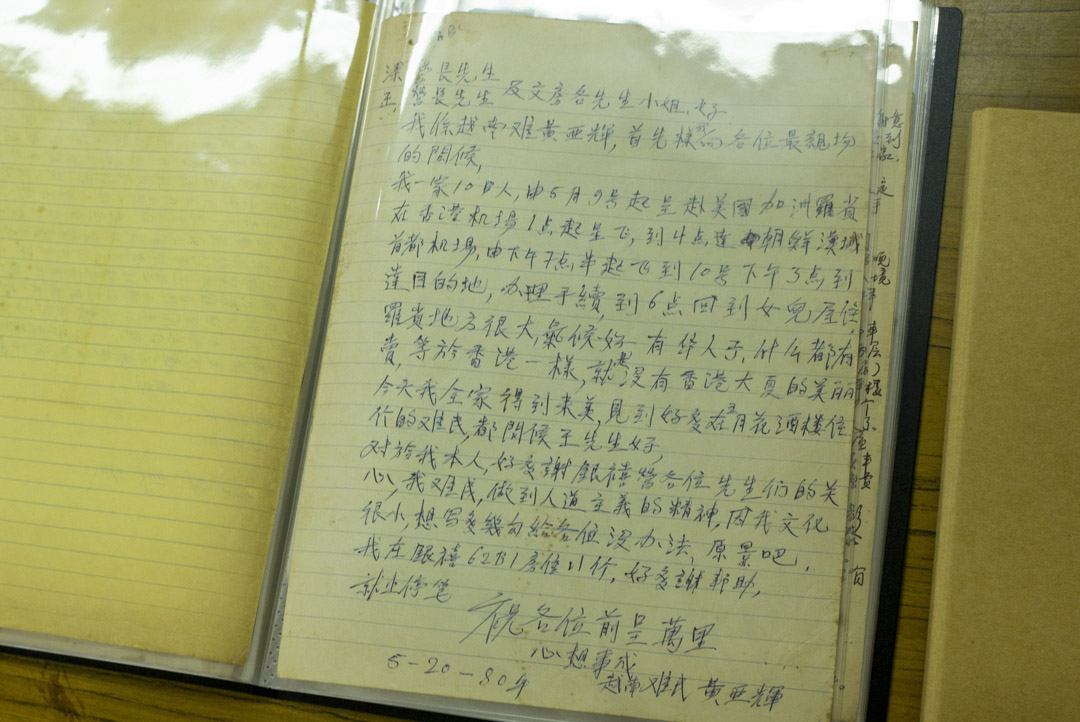 ABC
深 營長先生
王, 營長先生 及文房各先生小姐, 好
我係越南难黄亚輝, 首先様我向各位最親切
的問候,
我一家10口人, 由5月9号起呈赴美國加洲羅省
在香港机場1点起呈飞, 到4点達朝鮮漢城
首都机场, 由下午7点半起飞到10号下午3点到
達目的地, 办理手續, 到6点回到女兒屋住,
羅省地方很大, 氣候好 有华人子, 什么都有
賣, 等於香港一樣, 就是没有香港大夏的美丽
今天我全家得到来美, 見到好多在5月花酒楼住
个的难民, 都問候王先生好,
对於我本人, 好多謝銀禧營各位先生们的关
心, 我难民, 做到人道主義的精神, 因我文化
很小, 想写多幾句給各位没办法, 原景吧,
我在銀禧62B1房住11个, 好多謝邦助,
就止停笔
祝各位前呈萬里
心想事成
5-20-80年
越南难民 黄亚輝